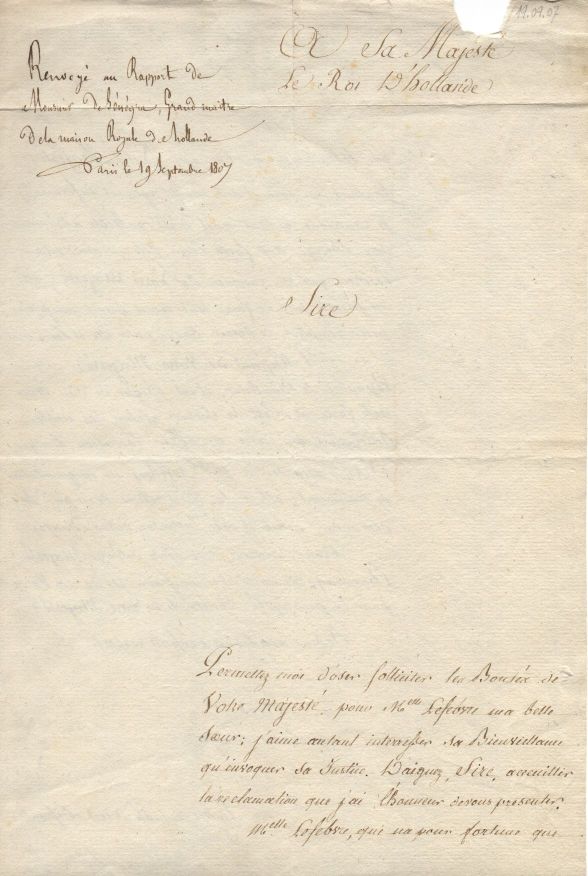 19.09.07
A Sa Majesté
Le Roi D'hollande
Renvoyé au Rapport de
Monsieur de Sénégra, Grand maitre
De la maison Royale de hollande
Paris le 19 Septembre 1807
Sire
Permettez moi d'oser solliciter les Bontés de
Votre Majesté pour Melle Lefébvre ma belle
Sœur; j'aime autant interresser sa Bienveillance
qu'invoquer sa Justice. Daignez, Sire, accueillir
la réclamation que j'ai l'honneur de vous présenter.
Melle Lefébvre, qui n'a pour fortune que